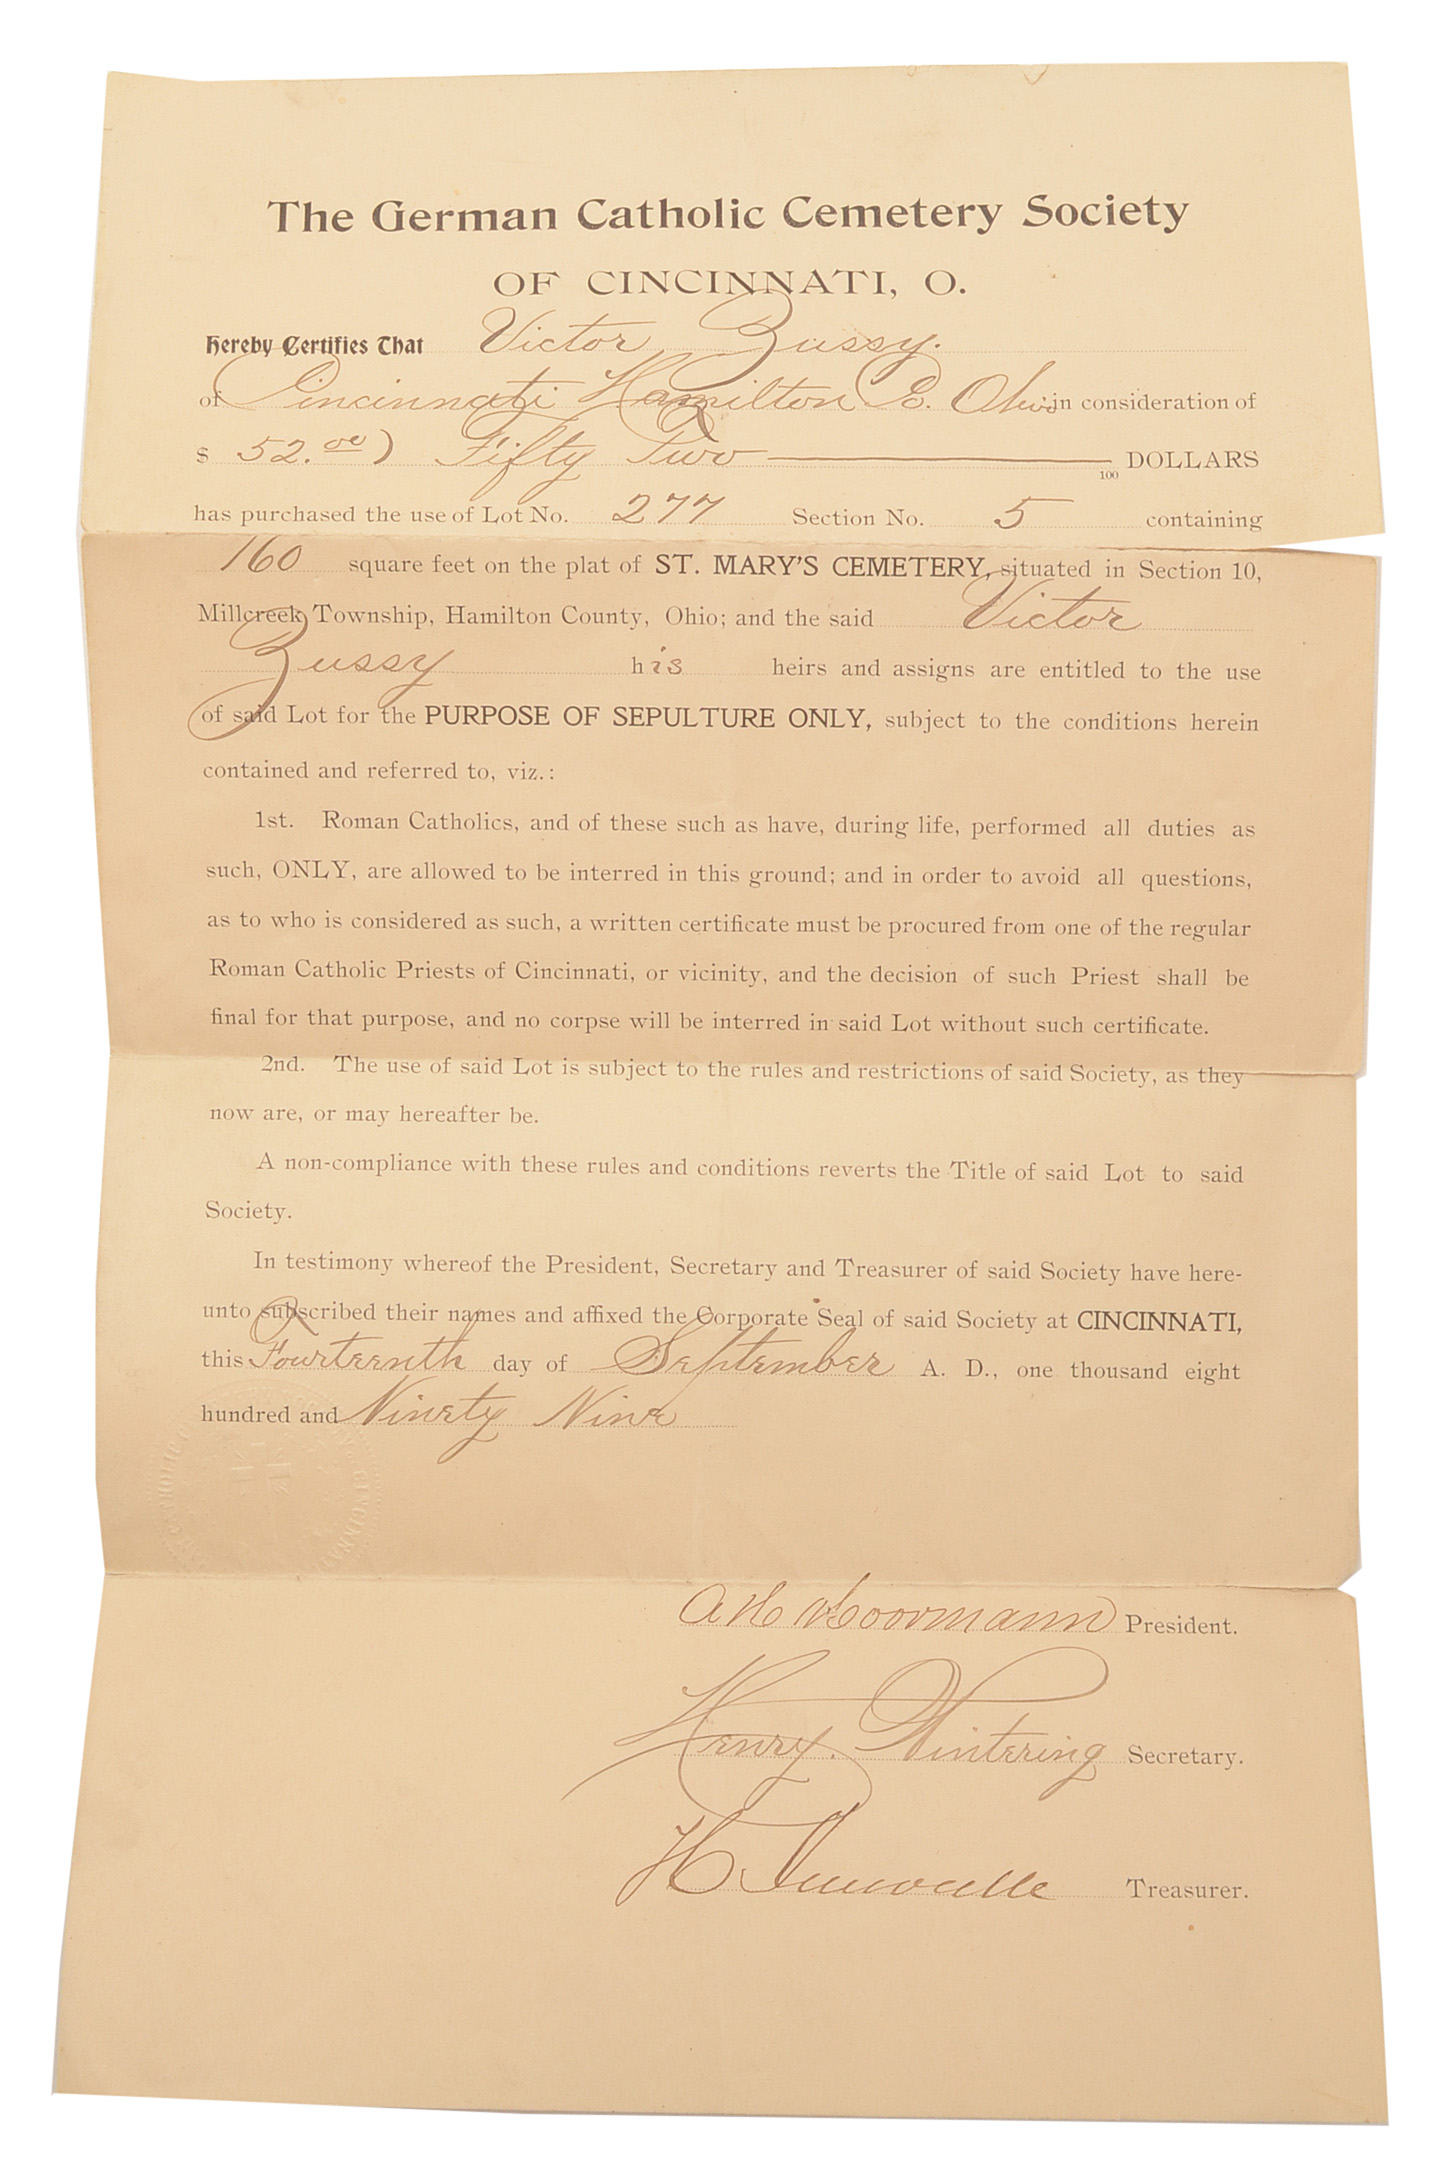 The German Catholic Cemetery Society
OF CINCINNATI, O.
Hereby Certifies That Victor Zussy.
of Cincinnati Hamilton Co. Ohio in consideration of
$ 52.00) Fifty Two 100 DOLLARS
has purchased the use of Lot No. 277 Section No. 5 containing
160 square feet on the plat of ST. MARY'S CEMETERY, situated in Section 10,
Millcreek Township, Hamilton County, Ohio; and the said Victor
Zussy his heirs and assigns are entitled to the use
of said Lot for the PURPOSE OF SEPULTURE ONLY, subject to the conditions herein
contained and referred to, viz.:
1st. Roman Catholics, and of these such as have, during life, performed all duties as
such, ONLY, are allowed to be interred in this ground; and in order to avoid all questions,
as to who is considered as such, a written certificate must be procured from one of the regular
Roman Catholic Priests of Cincinnati, or vicinity, and the decision of such Priest shall be
final for that purpose, and no corpse will be interred in said Lot without such certificate.
2nd. The use of said Lot is subject to the rules and restrictions of said Society, as they
now are, or may hereafter be.
A non-compliance with these rules and conditions reverts the Title of said Lot to said
Society.
In testimony whereof the President, Secretary and Treasurer of said Society have here-
unto subscribed their names and affixed the Corporate Seal of said Society at CINCINNATI,
this Fourteenth day of September A. D., one thousand eight
hundred and Ninety Nine
A H Moormann President.
Henry Wintering Secretary.
H Treasurer.